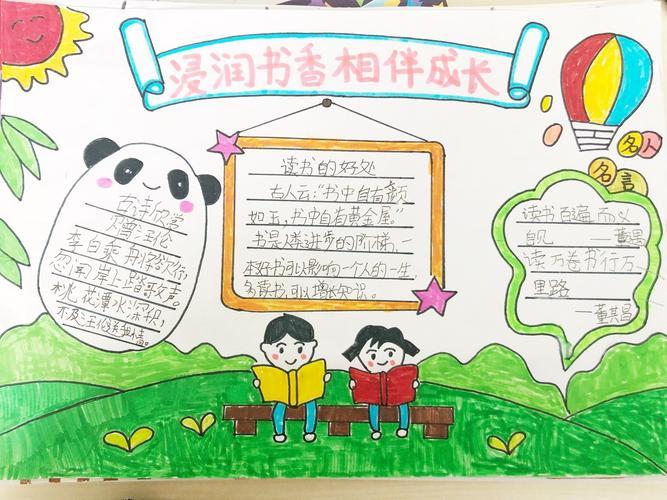 浸润书香相伴成长
古诗欣赏
赠汪伦
李白乘舟将欲行,
忽闻岸上踏歌声。
桃花潭水深千尺,
不及汪伦送我情。
读书的好处
古人云:“书中自有颜
如玉,书中自有黄金屋。”
书是人类进步的阶梯,一
本好书可以影响一个人的一生,
多读书,可以增长知识。
名人
名言
读书百遍而义
自见 ——董遇
读万卷书行万
里路
——董其昌